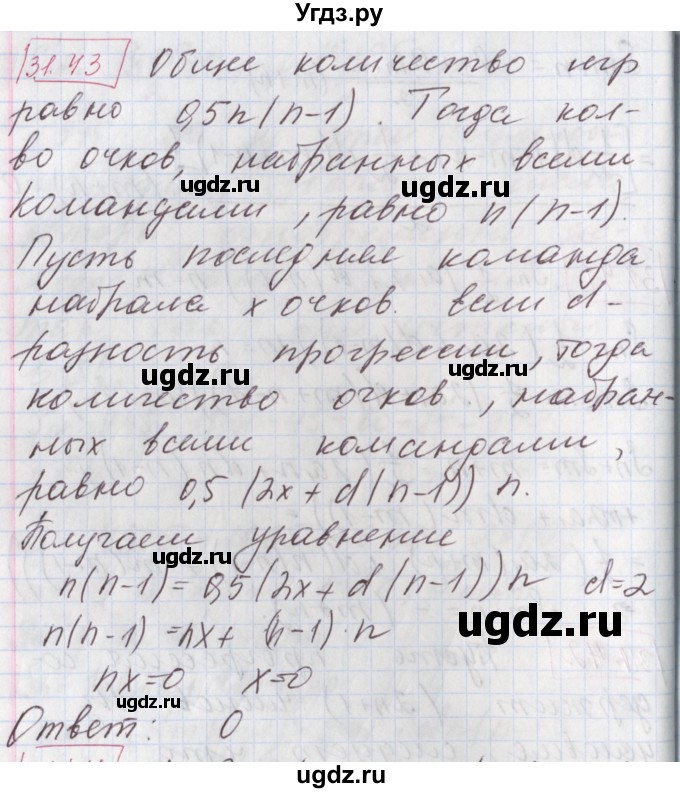 Угдз.ру
31.43 Общее количество игр
равно 0,5n(n-1). Тогда кол-
во очков, набранных всеми
командами, равно n(n-1).
Пусть последняя команда
набрала x очков. Если d-
разность прогрессии, тогда
количество очков, набран-
ных всеми командами,
равно 0,5(2x+d(n-1))n.
Получаем уравнение
n(n-1)=0,5(2x+d(n-1))n d=2
n(n-1)=nx+(n-1)·n
nx=0 x=0
Ответ: 0
ugdz.ru
ugdz.ru
ugdz.ru
ugdz.ru
ugdz.ru
ugdz.ru
ugdz.ru
ugdz.ru
ugdz.ru